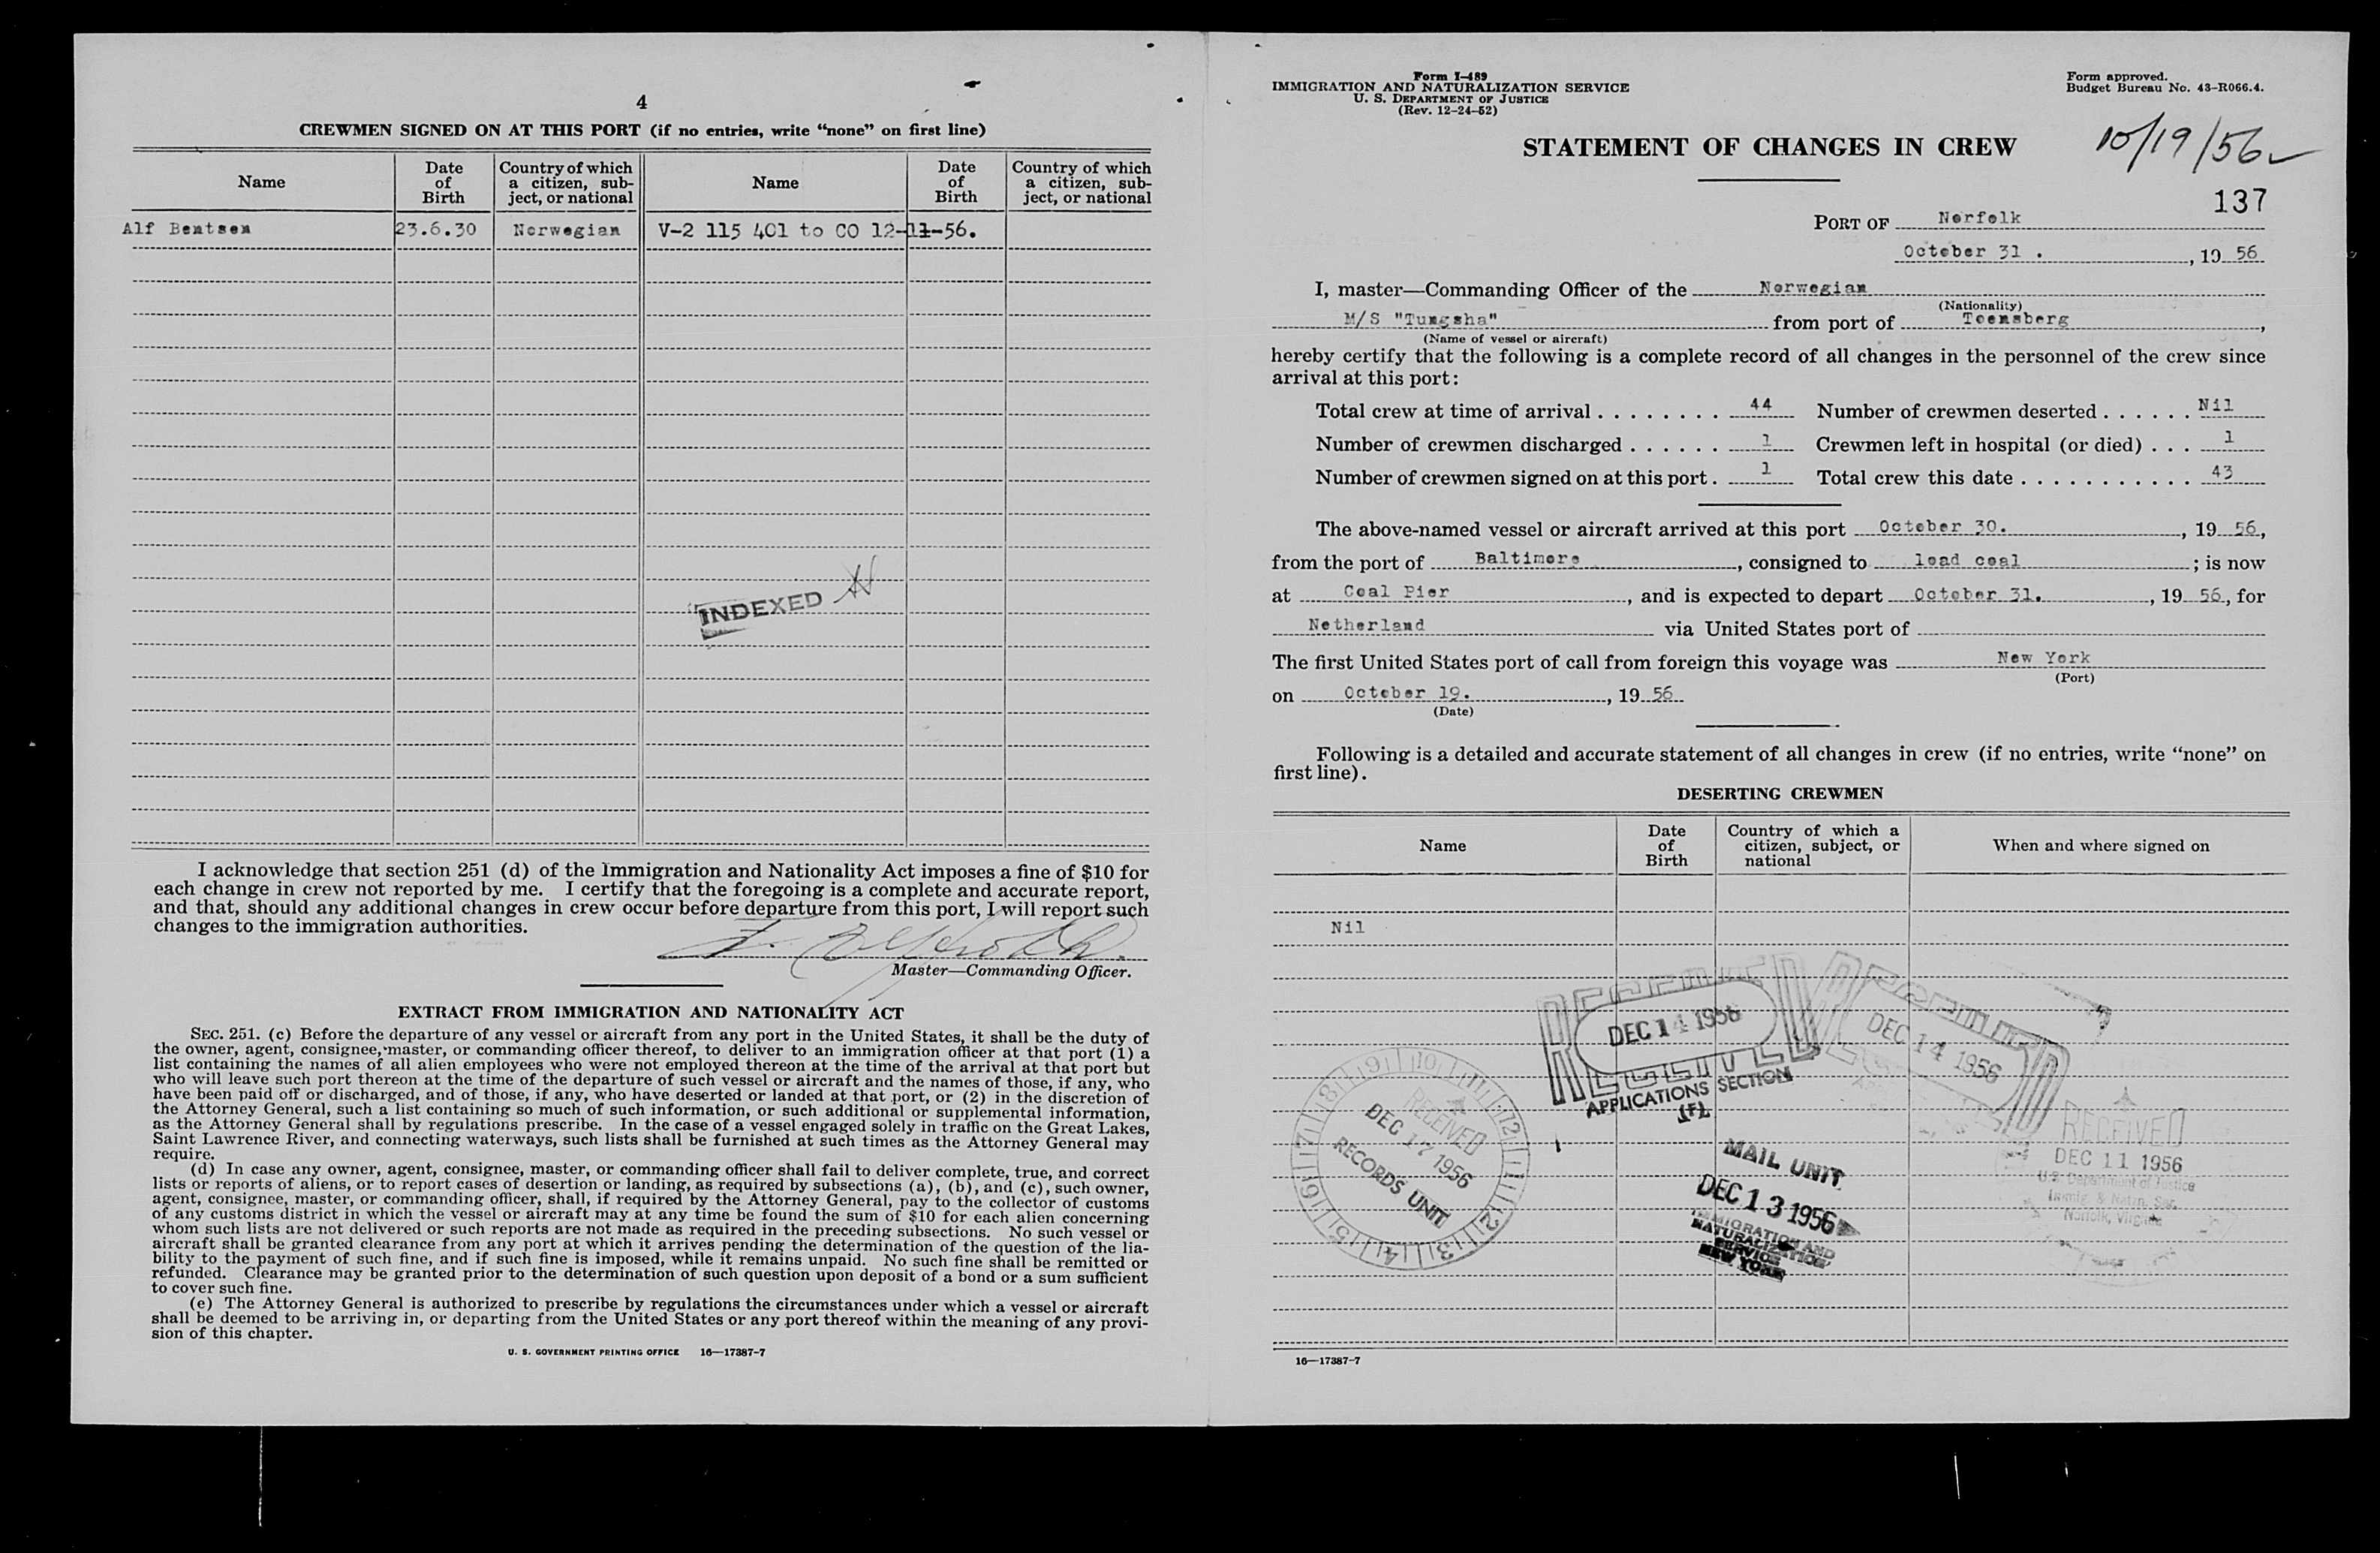 4
CREWMEN SIGNED ON AT THIS PORT (if no entries, write “none” on first line)
Name
Date of Birth
Country of which a citizen, sub-ject, or national
Name
Date of Birth
Country of which a citizen, sub-ject, or national
Alf Bentsen 23.6.30 Norwegian V-2 115 401 to CO 12-11-56.
INDEXED
I acknowledge that section 251 (d) of the Immigration and Nationality Act imposes a fine of $10 for
each change in crew not reported by me. I certify that the foregoing is a complete and accurate report,
and that, should any additional changes in crew occur before departure from this port, I will report such
changes to the immigration authorities.
Master—Commanding Officer.
EXTRACT FROM IMMIGRATION AND NATIONALITY ACT
SEC. 251. (c) Before the departure of any vessel or aircraft from any port in the United States, it shall be the duty of
the owner, agent, consignee, master, or commanding officer thereof, to deliver to an immigration officer at that port (1) a
list containing the names of all alien employees who were not employed thereon at the time of the arrival at that port but
who will leave such port thereon at the time of the departure of such vessel or aircraft and the names of those, if any, who
have been paid off or discharged, and of those, if any, who have deserted or landed at that port, or (2) in the discretion of
the Attorney General, such a list containing so much of such information, or such additional or supplemental information,
as the Attorney General shall by regulations prescribe. In the case of a vessel engaged solely in traffic on the Great Lakes,
Saint Lawrence River, and connecting waterways, such lists shall be furnished at such times as the Attorney General may
require.
(d) In case any owner, agent, consignee, master, or commanding officer shall fail to deliver complete, true, and correct
lists or reports of aliens, or to report cases of desertion or landing, as required by subsections (a), (b), and (c), such owner,
agent, consignee, master, or commanding officer, shall, if required by the Attorney General, pay to the collector of customs
of any customs district in which the vessel or aircraft may at any time be found the sum of $10 for each alien concerning
whom such lists are not delivered or such reports are not made as required in the preceding subsections. No such vessel or
aircraft shall be granted clearance from any port at which it arrives pending the determination of the question of the lia-
bility to the payment of such fine, and if such fine is imposed, while it remains unpaid. No such fine shall be remitted or
refunded. Clearance may be granted prior to the determination of such question upon deposit of a bond or a sum sufficient
to cover such fine.
(e) The Attorney General is authorized to prescribe by regulations the circumstances under which a vessel or aircraft
shall be deemed to be arriving in, or departing from the United States or any port thereof within the meaning of any provi-
sion of this chapter.
U. S. GOVERNMENT PRINTING OFFICE 16—17387-7
Form I-489
IMMIGRATION AND NATURALIZATION SERVICE
U. S. DEPARTMENT OF JUSTICE
(Rev. 12-24-52)
Form approved.
Budget Bureau No. 43-R066.4.
STATEMENT OF CHANGES IN CREW
10/19/56
137
PORT OF Norfolk
October 31 . , 19 56
I, master—Commanding Officer of the Norwegian
(Nationality)
M/S "Tungsha" from port of Toensberg ,
(Name of vessel or aircraft)
hereby certify that the following is a complete record of all changes in the personnel of the crew since
arrival at this port:
Total crew at time of arrival . . . . . . . . 44 Number of crewmen deserted . . . . . . Nil
Number of crewmen discharged . . . . . . 1 Crewmen left in hospital (or died) . . . 1
Number of crewmen signed on at this port . 1 Total crew this date . . . . . . . . . . . 43
The above-named vessel or aircraft arrived at this port October 30. , 19 56,
from the port of Baltimore , consigned to load coal ; is now
at Coal Pier , and is expected to depart October 31. , 19 56, for
Netherland via United States port of
The first United States port of call from foreign this voyage was New York
(Port)
on October 19. , 19 56
(Date)
Following is a detailed and accurate statement of all changes in crew (if no entries, write “none” on
first line).
DESERTING CREWMEN
Name
Date of Birth
Country of which a citizen, subject, or national
When and where signed on
Nil
RECEIVED
DEC 14 1956
RECEIVED
APPLICATIONS SECTION
(F)
RECEIVED
DEC 14 1956
8 9 10 11 12 1 2 3 4 5 6 7
RECEIVED
DEC 17 1956
RECORDS UNIT
MAIL UNIT
DEC 13 1956
IMMIGRATION AND
NATURALIZATION
SERVICE
NEW YORK
RECEIVED
DEC 11 1956
U.S. Department of Justice
Immig. & Natzn. Ser.
Norfolk, Virginia
16—17387-7